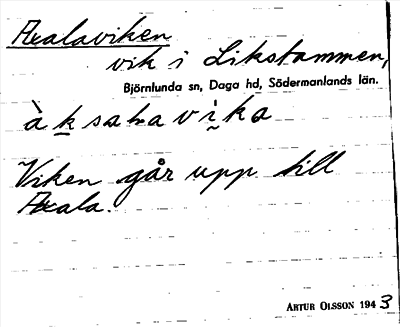 Axalaviken
vik i Likstammen,
Björnlunda sn, Daga hd, Södermanlands län.
àksalavika
Viken går upp till
Axala.
ARTUR OLSSON 1943